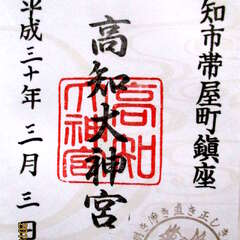 知市帯屋町鎮座
高知大神宮
高知
大神宮
平成三十年三月三